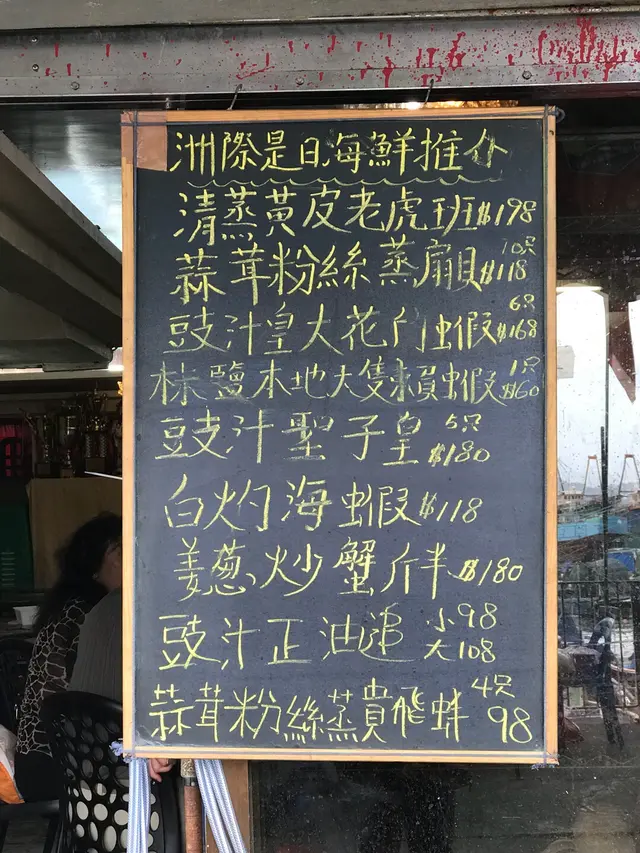 洲際是日海鮮推介
清蒸黃皮老虎班$198
蒜茸粉絲蒸扇貝10只$118
豉汁皇大花門虾蝦6只$168
椒鹽本地大隻賴蝦1只$160
豉汁聖子皇5只$180
白灼海蝦$118
姜葱炒蟹斤半$180
豉汁正油追小98大108
蒜茸粉絲蒸貴飛蚌4只98